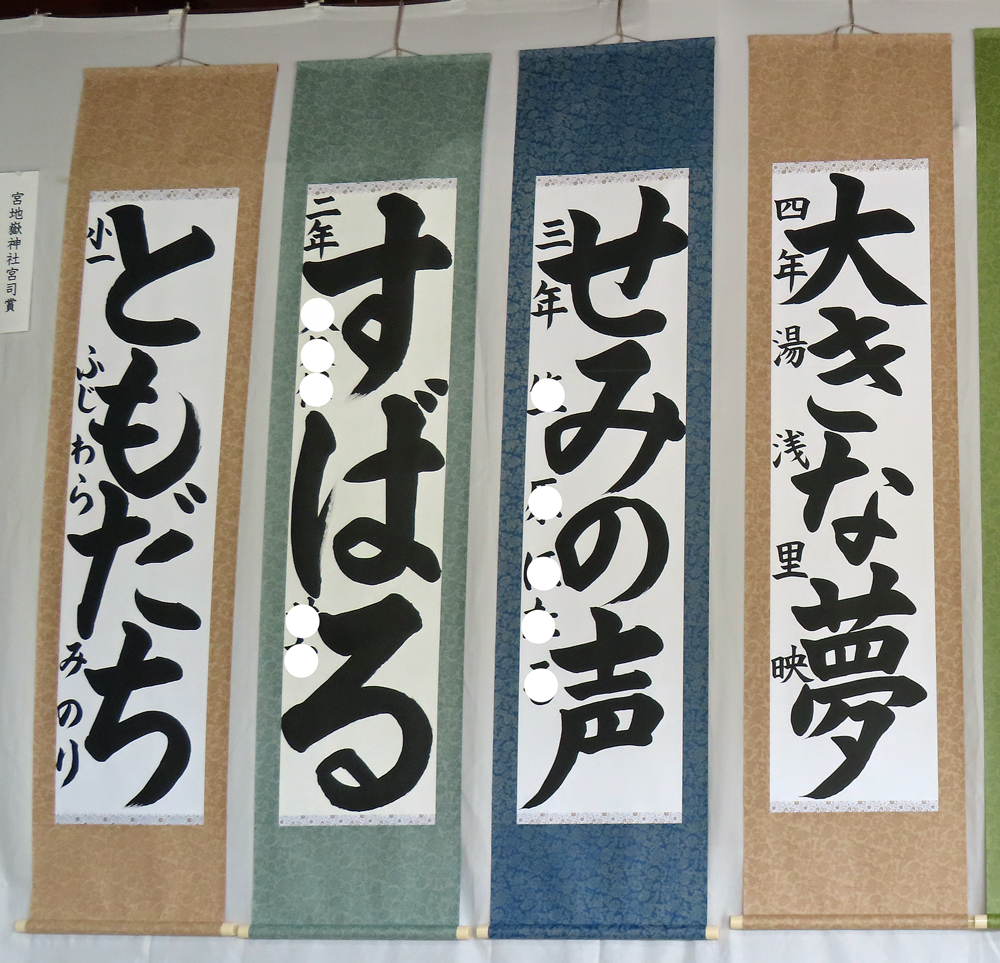 大きな夢
四年 湯浅里映
せみの声
三年
すばる
二年
ともだち
小一 ふじわら みのり
宮地嶽神社宮司賞